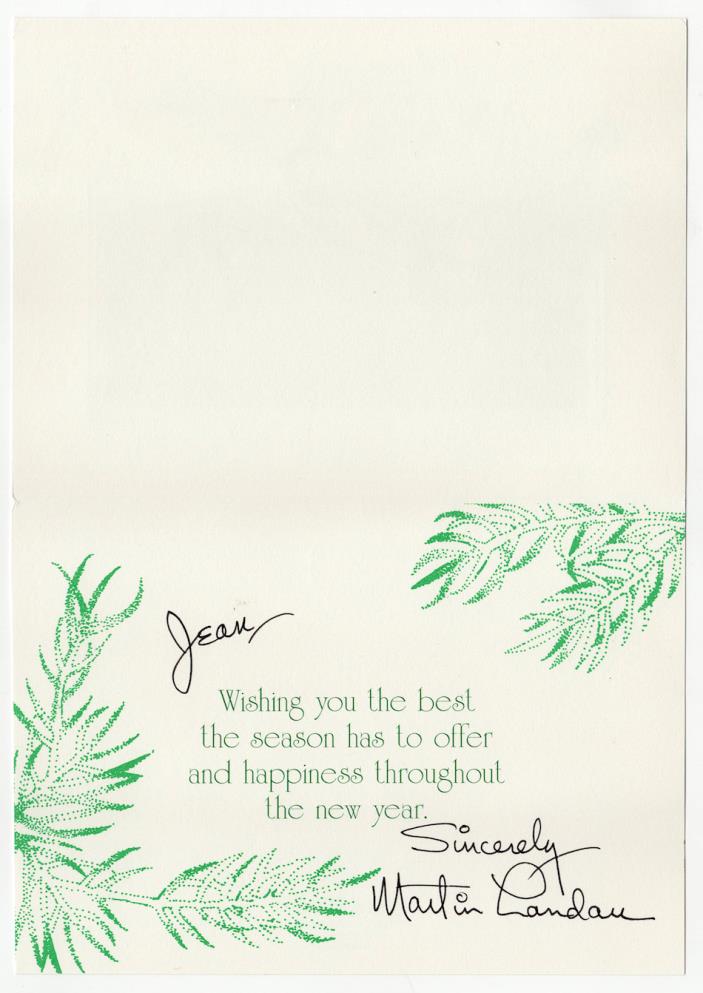 Jean,
Wishing you the best
the season has to offer
and happiness throughout
the new year.
Sincerely
Martin Landau